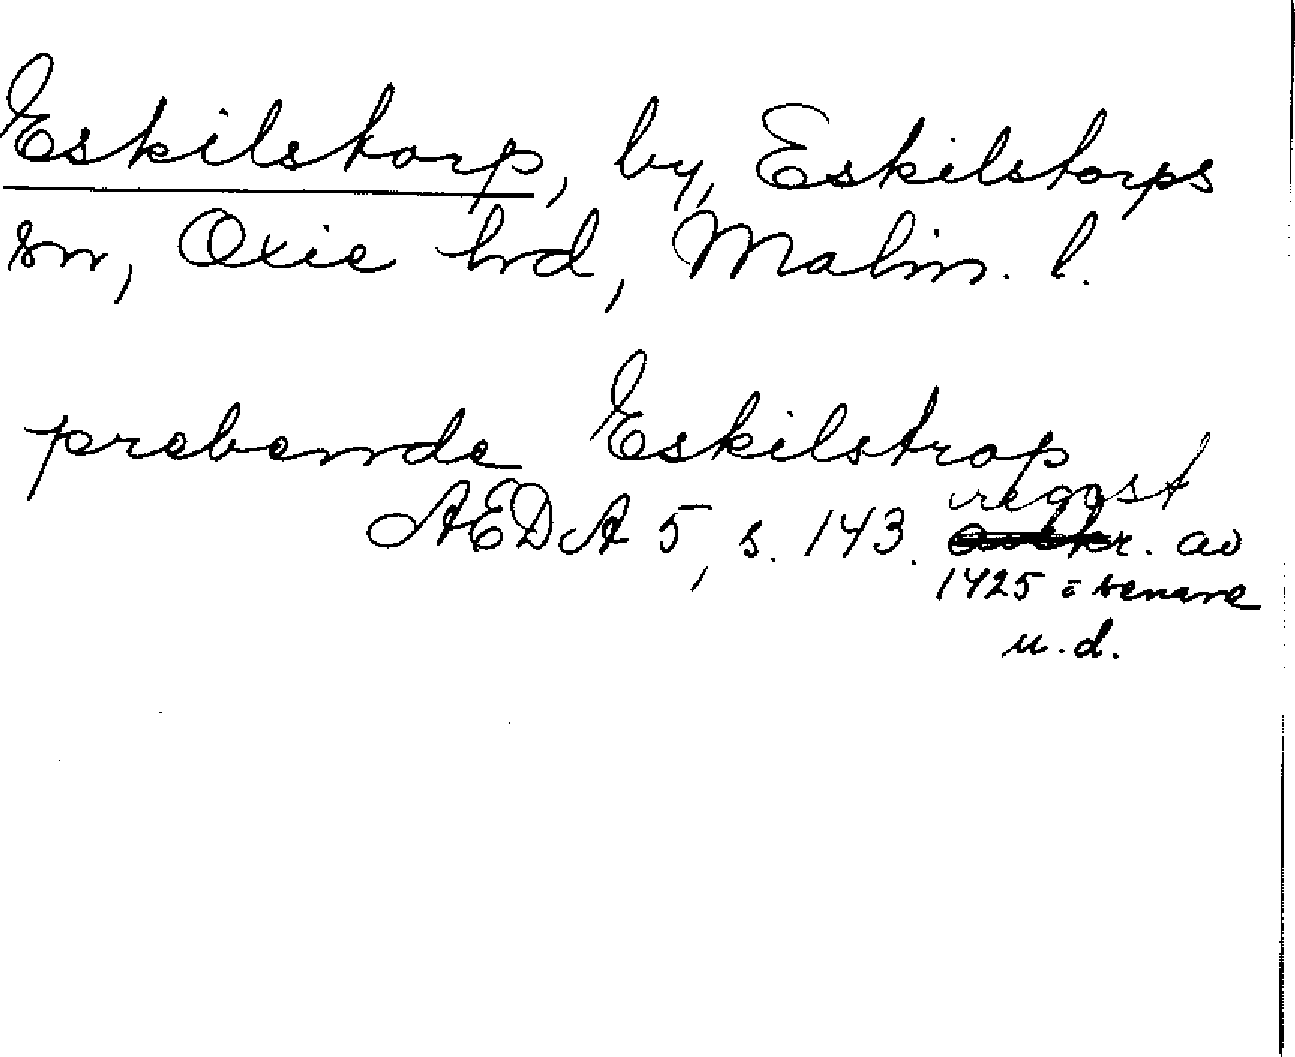 Eskilstorp, by, Eskilstorps
sn, Oxie hrd, Malm. l.
prebende Eskilstrop
AEDA 5, s. 143. regest av
1425 o senare
u. d.